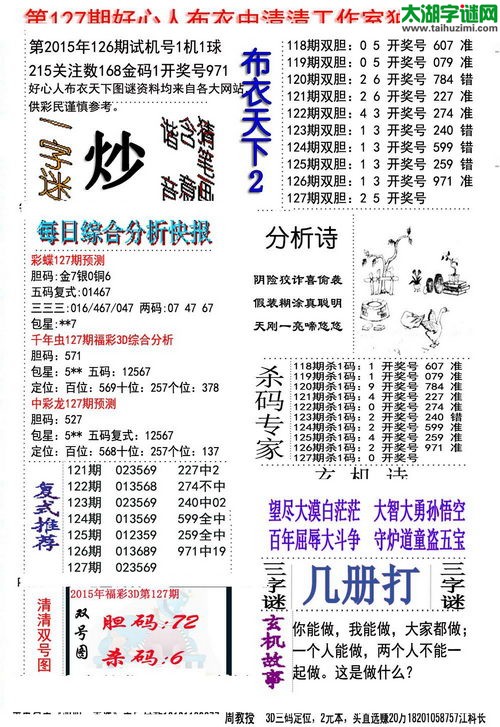 太湖字谜网
www.taihuzimi.com
第127期好心人布衣虫清清工作室
第2015年126期试机号1机1球
215关注数168金码1开奖号971
好心人布衣天下图谜资料均来自各大网站
供彩民谨慎参考。
一字迷
炒
布衣天下2
118期双胆:05 开奖号 607 准
119期双胆:05 开奖号 079 准
120期双胆:26 开奖号 784 错
121期双胆:26 开奖号 227 准
122期双胆:43 开奖号 274 准
123期双胆:13 开奖号 240 错
124期双胆:13 开奖号 599 错
125期双胆:13 开奖号 259 错
126期双胆:13 开奖号 971 准
127期双胆:25 开奖号
每日综合分析快报
彩蝶127期预测
胆码:金7银0铜6
五码复式:01467
三三三:016/467/047 两码:07 47 67
包星:**7
千年虫127期福彩3D综合分析
胆码:571
包星:5** 五码:12567
定位:百位:569十位:257个位:378
中彩龙127期预测
胆码:527
包星:5** 五码复式:12567
定位:百位:568十位:257个位:137
分析诗
阴险狡诈喜偷袭
假装糊涂真聪明
天刚一亮啼悠悠
杀码专家
118期杀1码:1 开奖号 607 准
119期杀1码:1 开奖号 079 准
120期杀1码:9 开奖号 784 准
121期杀1码:4 开奖号 227 准
122期杀1码:0 开奖号 274 准
123期杀1码:2 开奖号 240 错
124期杀1码:4 开奖号 599 准
125期杀1码:4 开奖号 259 准
126期杀1码:2 开奖号 971 准
127期杀1码:0 开奖号
复式推荐
121期 023569 227中2
122期 013568 274不中
123期 023569 240中02
124期 013569 599全中
125期 012359 259全中
126期 013689 971中19
127期 023569
玄机诗
望尽大漠白茫茫 大智大勇孙悟空
百年屈辱大斗争 守炉道童盗五宝
清清双号图
2015年福彩3D第127期
双号图
胆码:72
杀码:6
三字谜
几册打
三字谜
玄机故事
你能做,我能做,大家都做;
一个人能做,两个人不能一
起做。这是做什么?
周教授 3D三码定位,2元本,头直选赚20万18201058757江科长